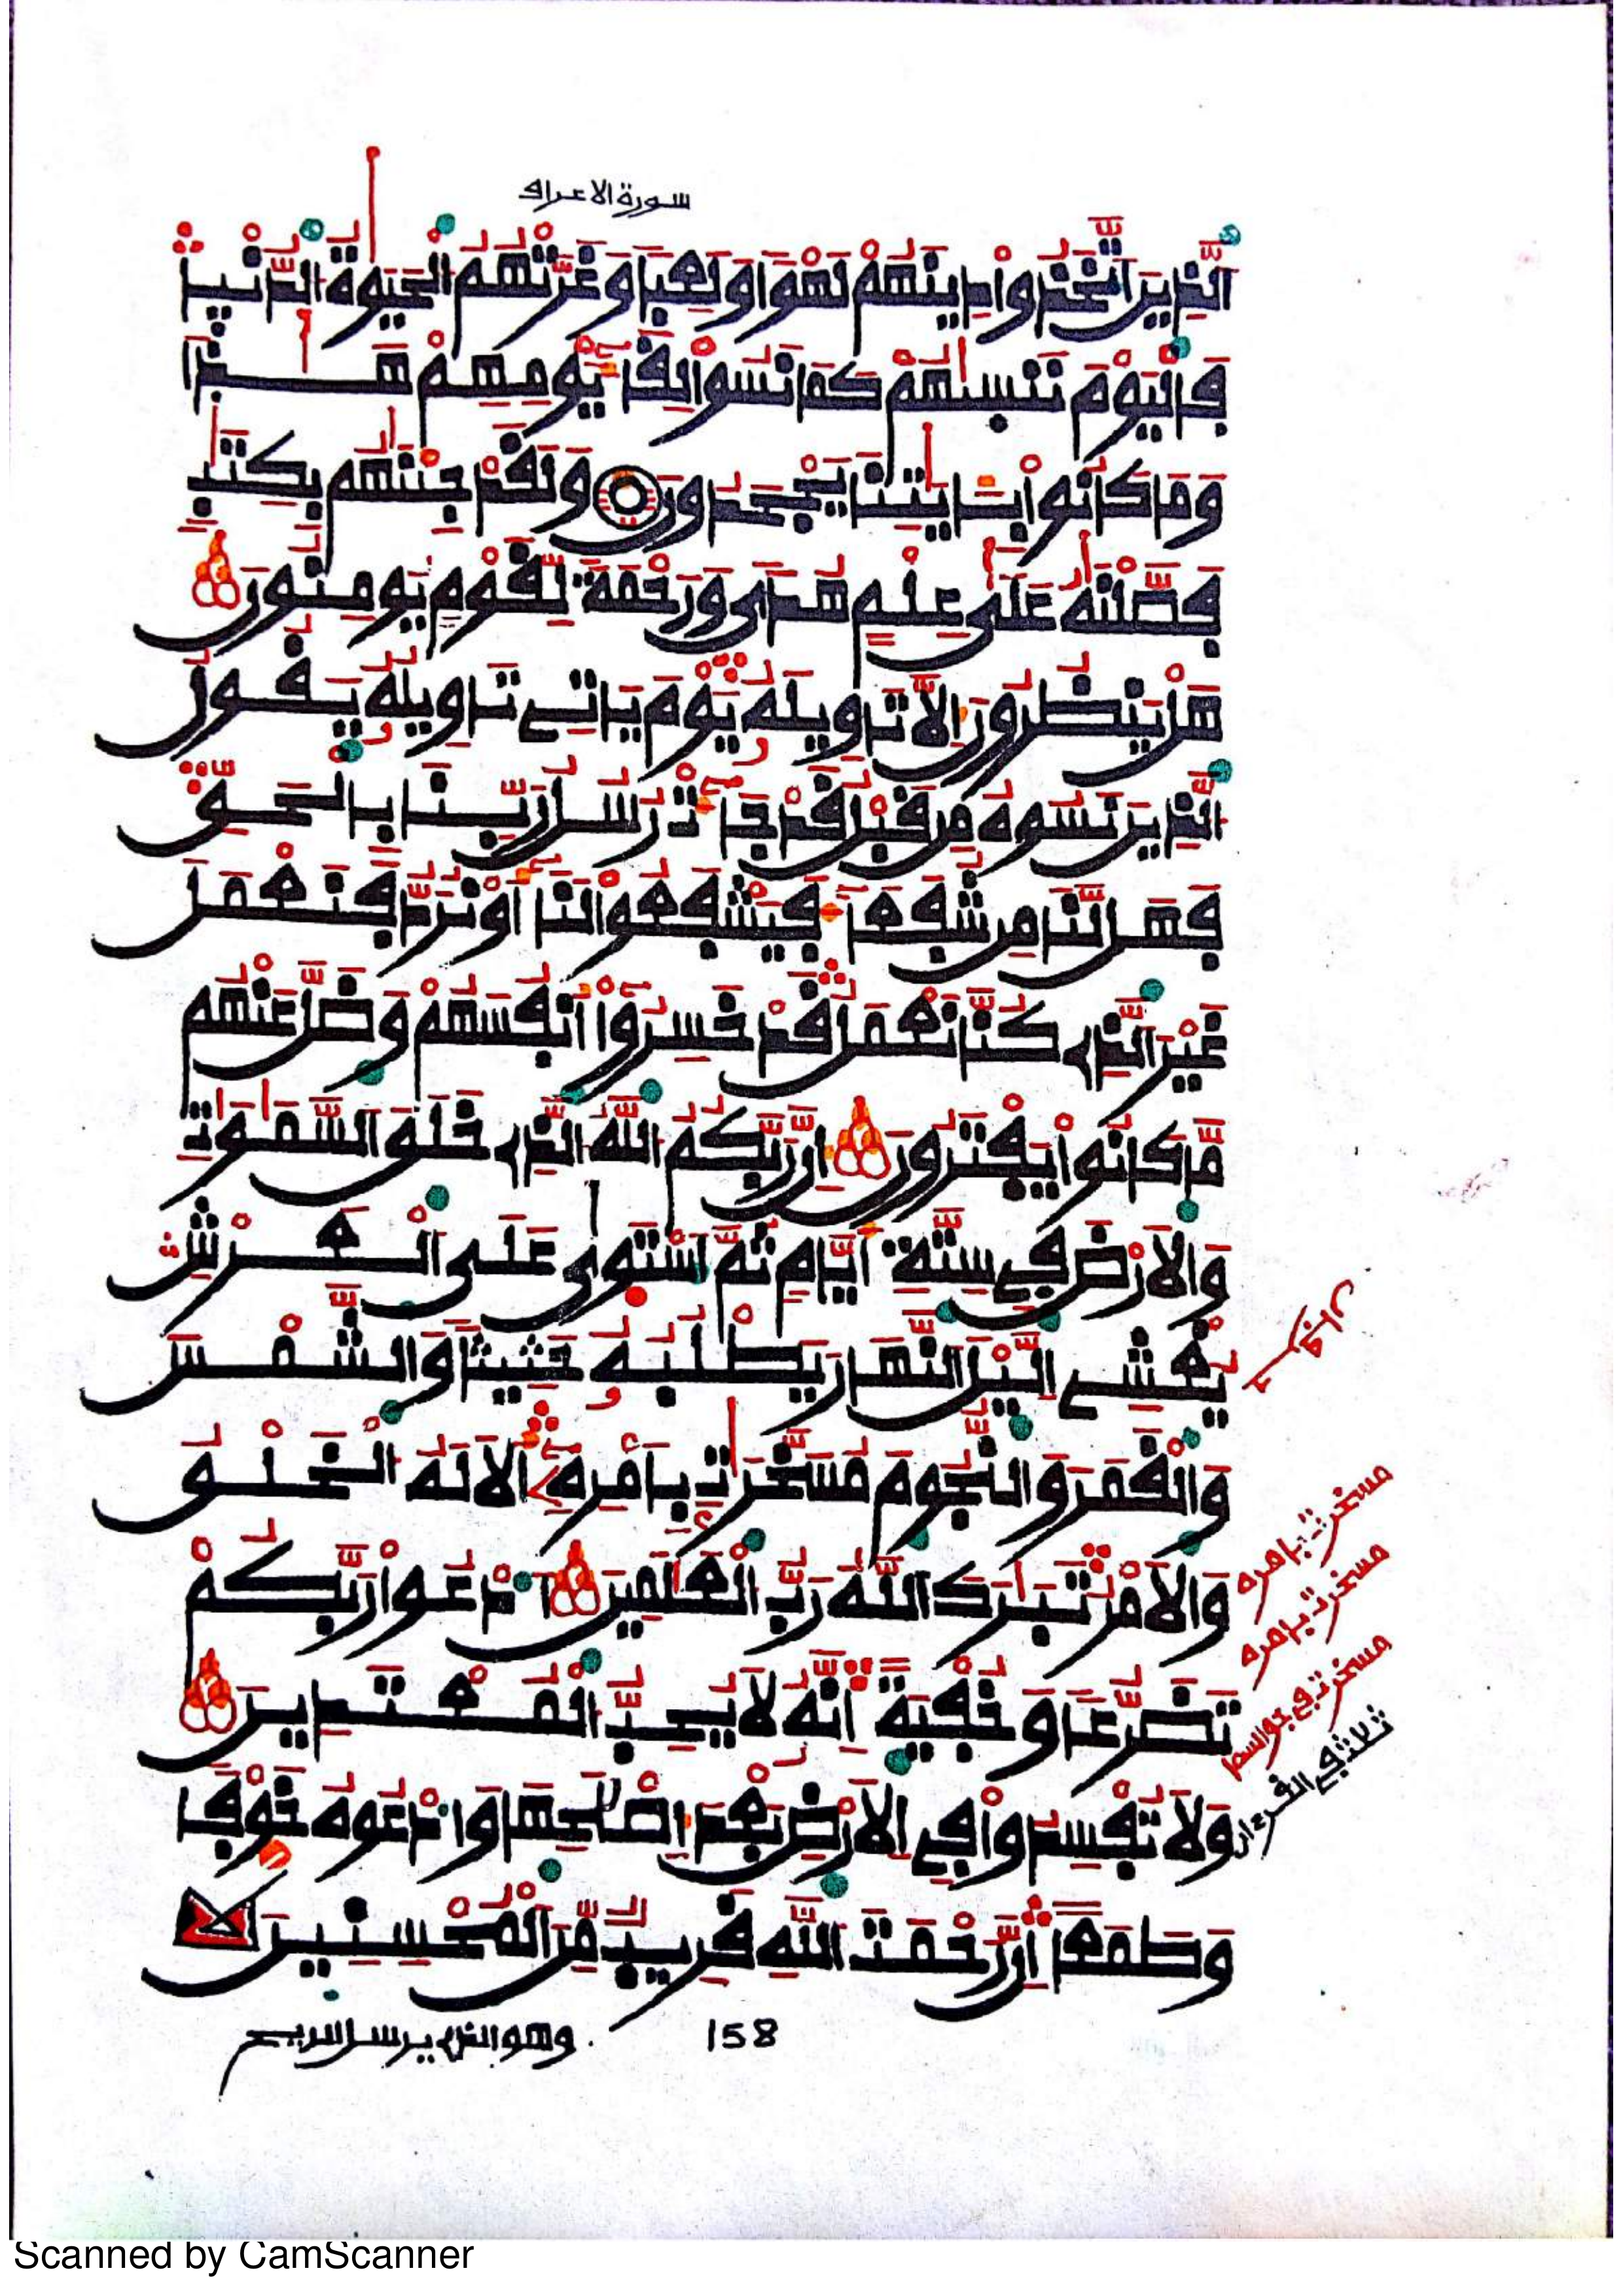 سورة الاعراف
الذِينَ اَتَّخَذُواْ دِينَهُمْ لَهْوٗا وَلَعِبٗا وَغَرَّتْهُمُ الْحَيَوٰةُ الدُّنْيا
فَالْيَوْمَ نَنسِيٰهُمْ كَمَا نَسُواْ لِقَآءَ يَوْمِهِمْ هَـــذَا
وَمَا كَانُواْ بِـَٔايَٰتِنَا يَجْحَدُونَ وَلَقَدْ جِئْنَٰهُم بِكِتَٰبٖ
فَصَّلْنَٰهُ عَلَىٰ عِلْمٍ هُدٗى وَرَحْمَةٗ لِّقَوْمٖ يُومِنُونَ
هَلْ يَنظُرُونَ إِلَّا تَاوِيلَهُۥ يَوْمَ يَاتِے تَاوِيلُهُۥ يَقُولُ
الذِينَ نَسُوهُ مِن قَبْلُ قَدْ جَآءَتْ رُسُلُ رَبِّنَا بِالْحَقِّ
فَهَل لَّنَا مِن شُفَعَآءَ فَيَشْفَعُواْ لَنَآ أَوْ نُرَدُّ فَنَعْمَلَ
غَيْرَ الذِے كُنَّا نَعْمَلُ قَدْ خَسِرُوٓاْ أَنفُسَهُمْ وَضَلَّ عَنْهُم
مَّا كَانُواْ يَفْتَرُونَ إِنَّ رَبَّكُمُ اللَّهُ الذِے خَلَقَ السَّمَٰوَٰتِ
وَالَارْضَ فِے سِتَّةِ أَيَّامٖ ثُمَّ اَسْتَوَىٰ عَلَى الْعَرْشِ
يُغْشِے اِليْلَ النَّهَارَ يَطْلُبُهُۥ حَثِيثٗا وَالشَّمْسَ
وَالْقَمَرَ وَالنُّجُومَ مُسَخَّرَٰتِۭ بِأَمْرِهِۦٓ أَلَا لَهُ الْخَلْقُ
وَالَامْرُ تَبَٰرَكَ اللَّهُ رَبُّ الْعَٰلَمِينَ اَدْعُواْ رَبَّكُمْ
تَضَرُّعٗا وَخُفْيَةً إِنَّهُۥ لَا يُحِبُّ الْمُعْتَدِينَ
وَلَا تُفْسِدُواْ فِے اِلَارْضِ بَعْدَ إِصْلَٰحِهَا وَادْعُوهُ خَوْفٗا
وَطَمَعاً إِنَّ رَحْمَتَ اللَّهِ قَرِيبٞ مِّنَ الْمُحْسِنِينَ
مسخرت بامره
مسخرت بامره
مسخرت في جو السما
ثلاث في القرءان
158
وهو الذى يرسل الريح
Scanned by CamScanner